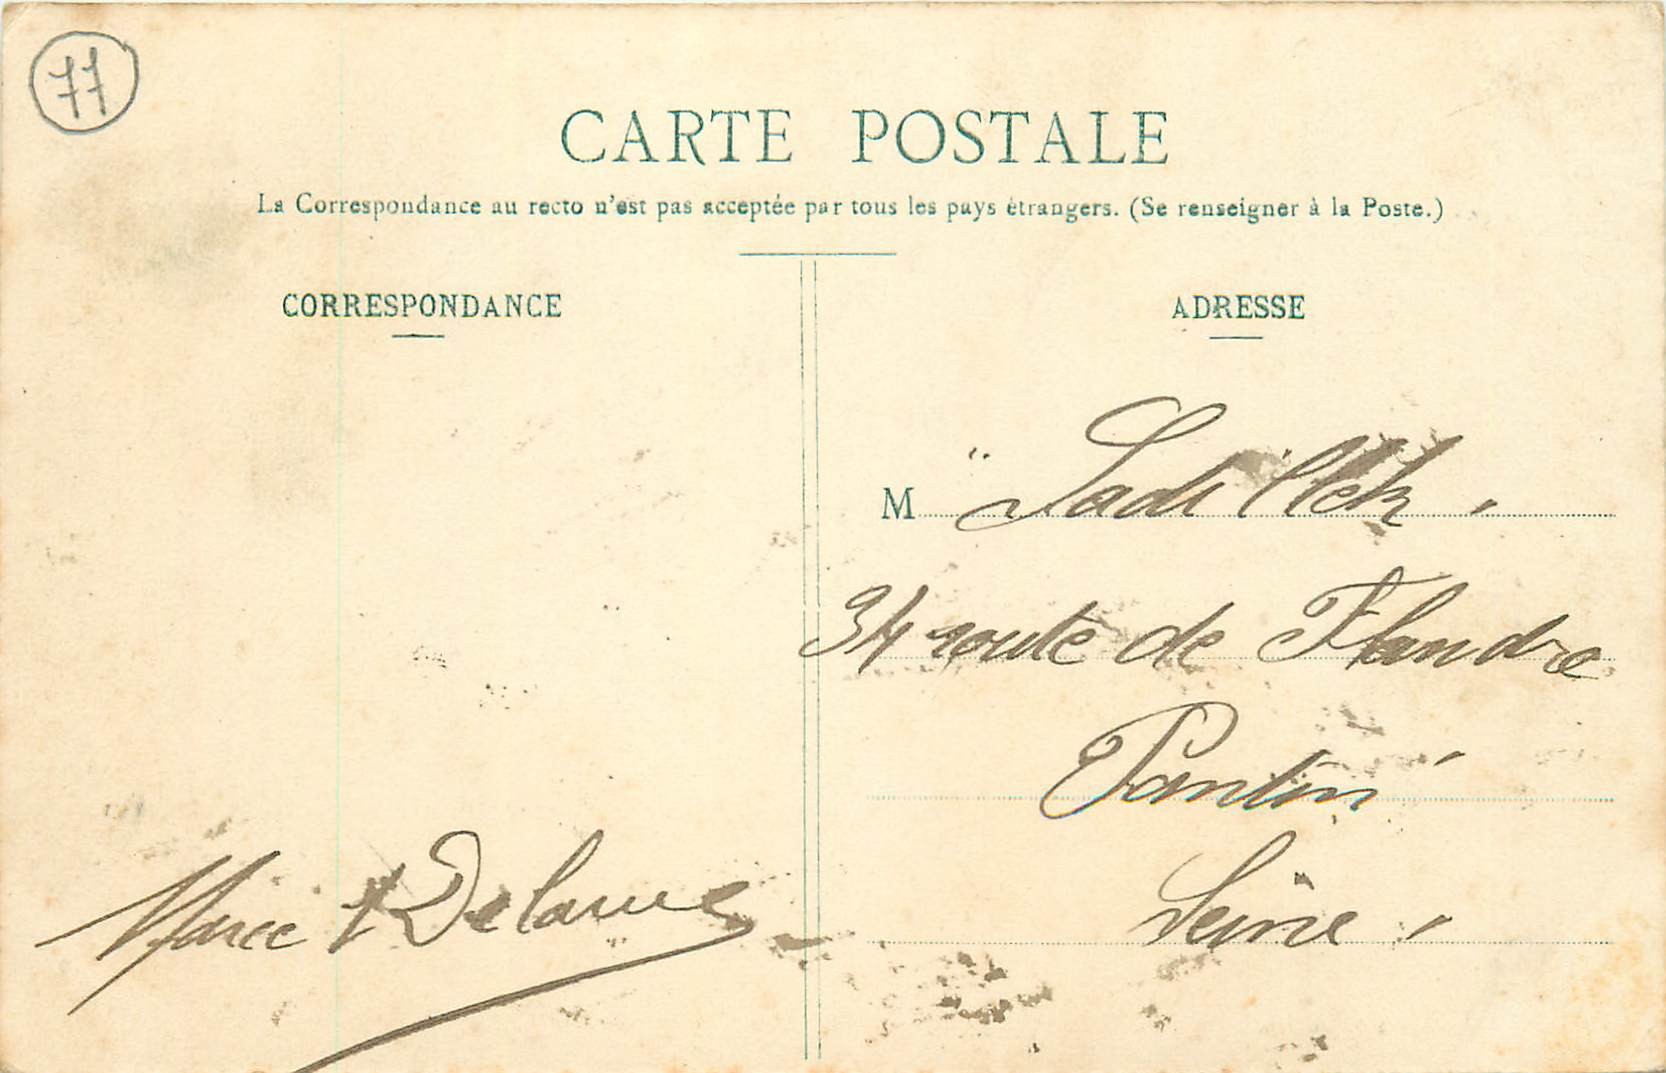 77
CARTE POSTALE
La Correspondance au recto n'est pas acceptée par tous les pays étrangers. (Se renseigner à la Poste.)
CORRESPONDANCE
ADRESSE
M
34 route de Flandre
Pantin
Seine
Delarue